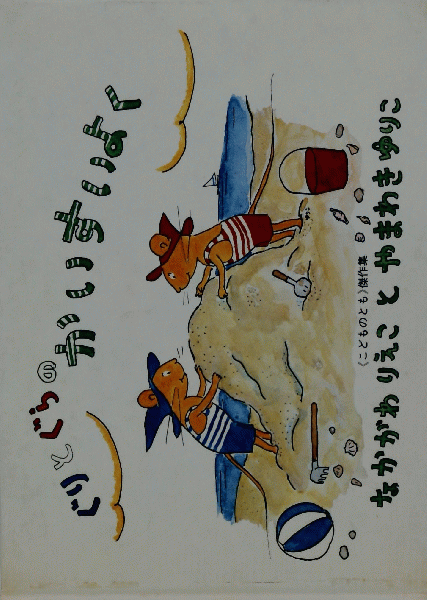 ぐりとぐらの
かいすいよく
《こどものとも》傑作集
なかがわりえこ と やまわきゆりこ